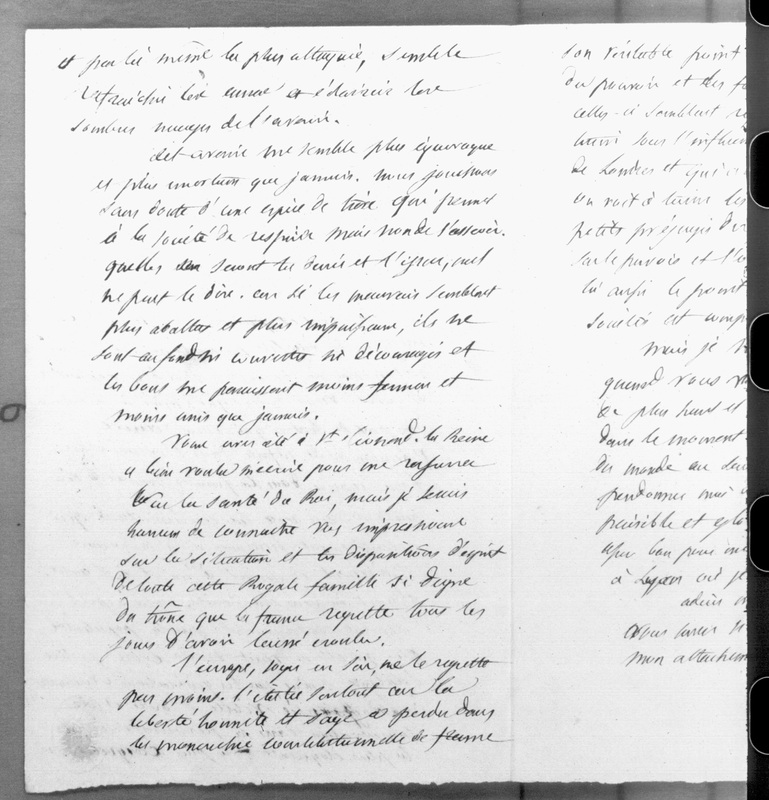 et par là même la plus attaquée, semble
rafraichir les âmes et éclaircir les
sombres nuages de l'avenir.
Cet avenir me semble plus équivoque
et plus incertain que jamais. nous jouissons
sans doute d'une espèce de trève qui permet
à la société de respirer mais non de s'asseoir.
quelles en seront la durée et l'issue, nul
ne peut le dire. car si les mauvais semblent
plus abattus et plus impuissans, ils ne
sont au fond ni convertis ni découragés et
les bons me paraissent moins fermes et
moins unis que jamais.
Vous avez été à St. Léonard. la Reine
a bien voulu m'écrire pour me rassurer
sur la santé du Roi, mais je serais
heureux de connaitre vos impressions
sur la situation et les dispositions d'esprit
de toute cette Royale famille si digne
du trône que la france regrette tous les
jours d'avoir laissé crouler.
l'europe, soyez en sûr, ne le regrette
pas moins. l'italie surtout car la
liberté honnête et sage a perdu dans
la monarchie constitutionnelle de france
son véritable point
du pouvoir et des
celles-ci semblent
sous l'influen
de Londres et qui
on voit à
petits préjugés du
sur le pavois et l'
là aussi le point
société est
Mais je
quand vous
de plus haut et
dans le moment
du monde au
pardonnez moi
paisible et
à
adieu
mon attachem